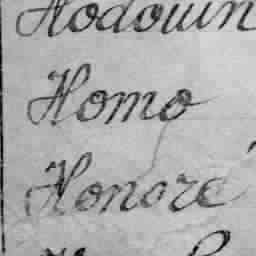 Hodouin
Homo
Honoré